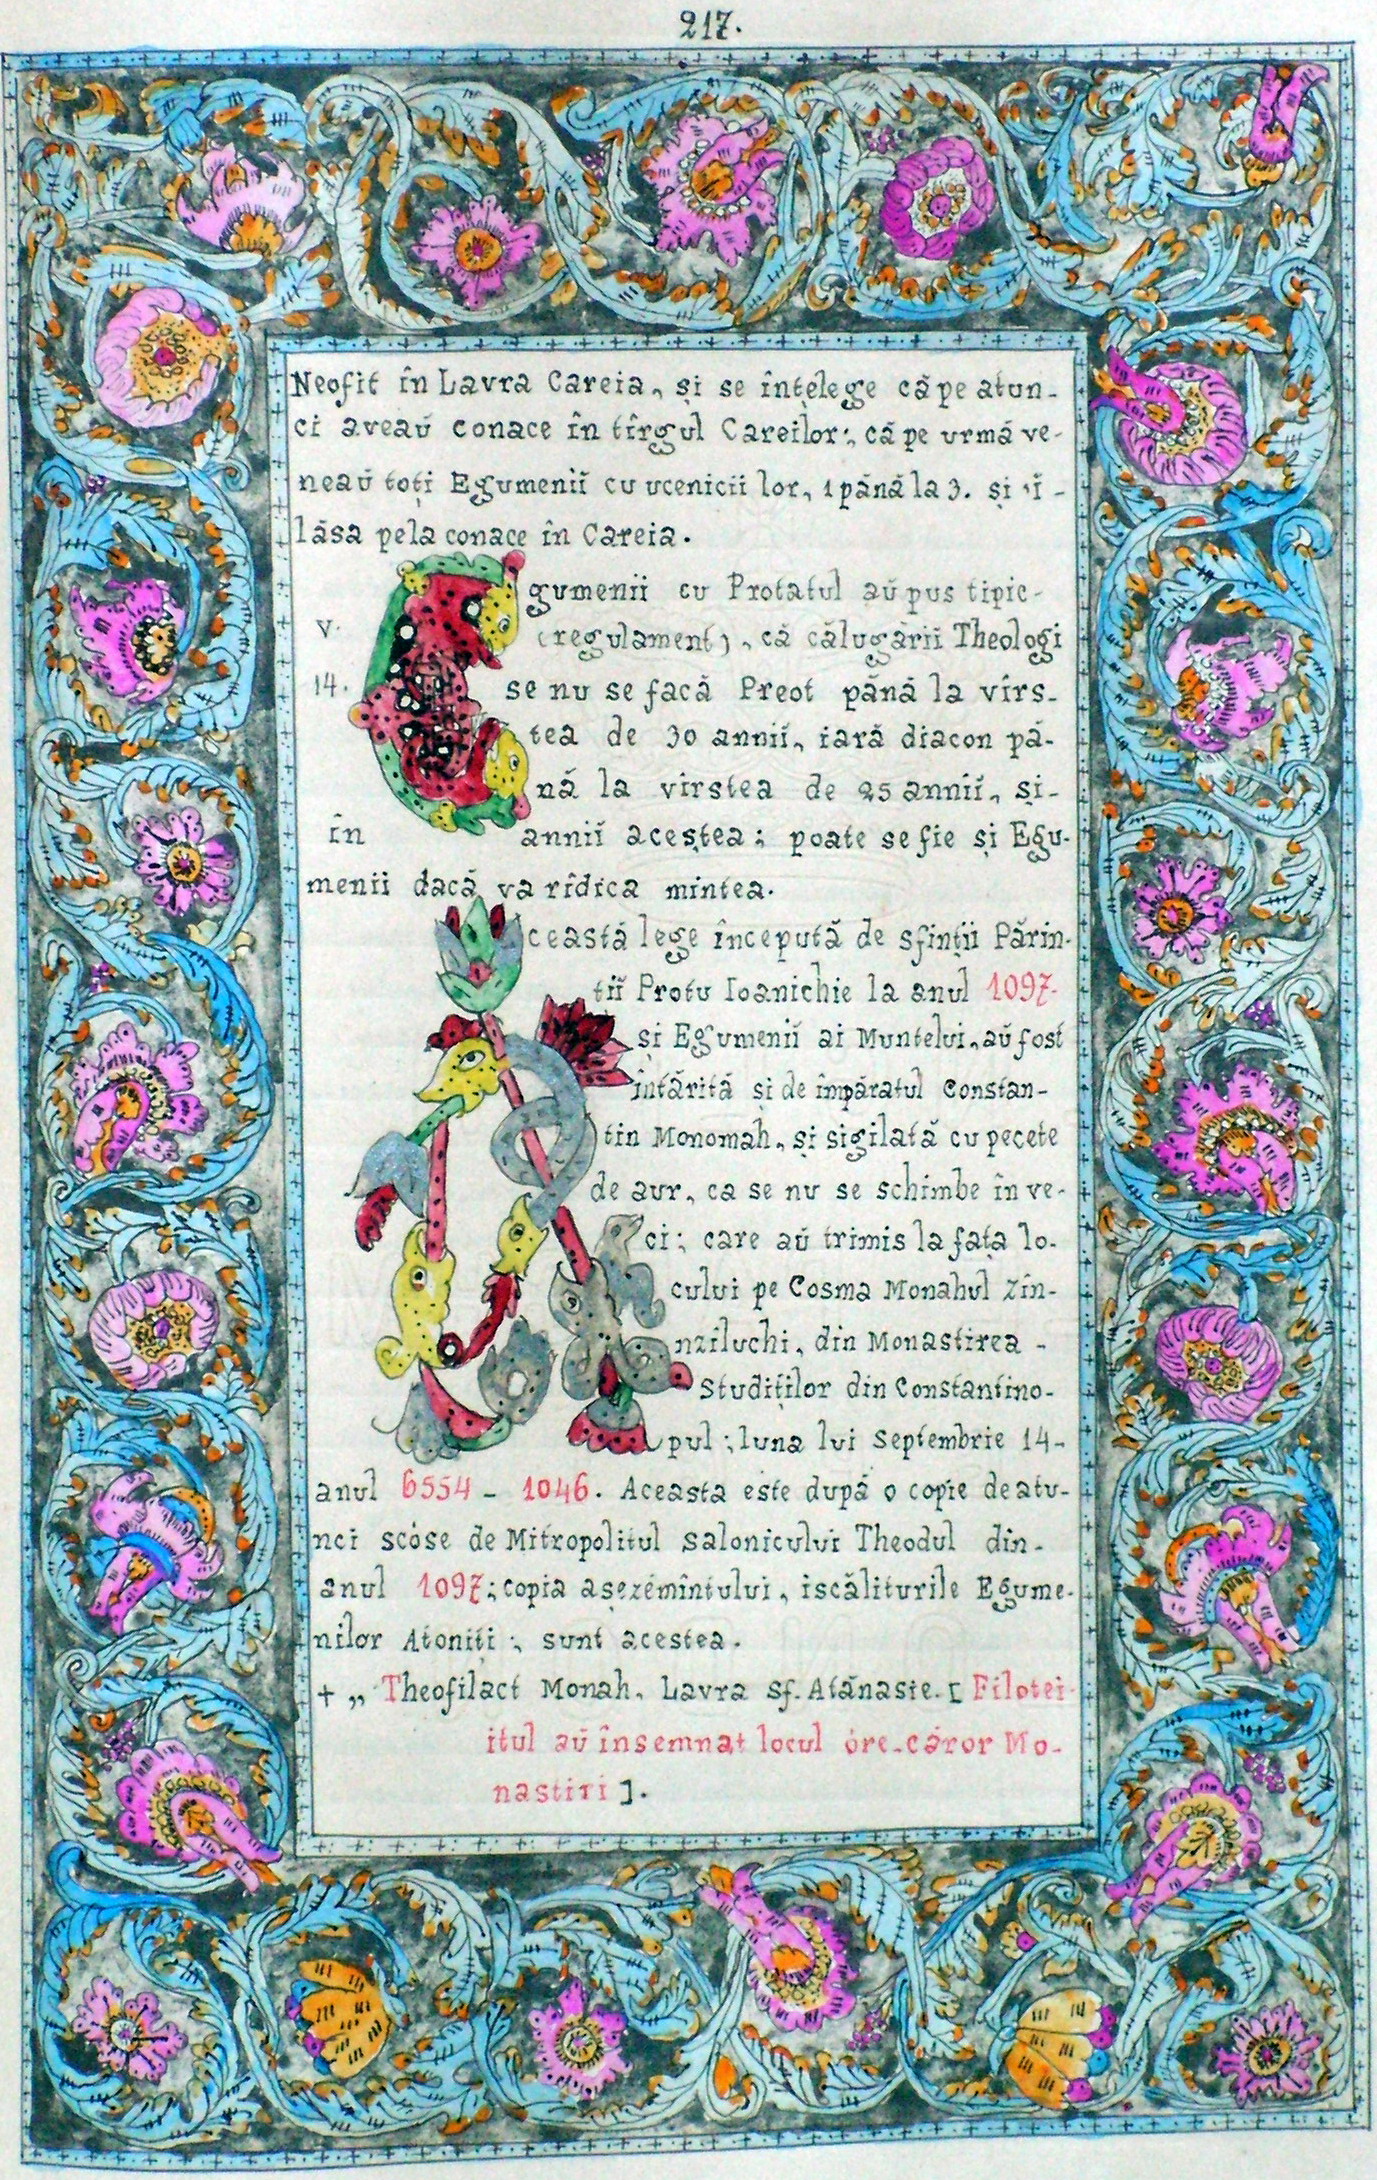 217.
Neofit în Lavra Careia, și se înțelege că pe atun-
ci aveaŭ conace în tîrgul Careilor; că pe urmă ve-
neaŭ toți Egumeniĭ cu ucenicii lor, 1 pănă la 3. și 'ĭ-
lăsa pela conace în Careia.
Egumenii cu Protatul aŭ pus tipic-
v. (regulament), că călugării Theologi
14. se nu se facă Preot pănă la vîrs-
tea de 30 anniĭ, iară diacon pă-
nă la vîrstea de 25 anniĭ, și-
în anniĭ aceștea; poate se fie și Egu-
menii dacă va rîdica mintea.
Această lege începută de sfinții Părin-
țiĭ Protu Ioanichie la anul 1097.
și Egumeniĭ ai Muntelui, aŭ fost
întărită și de împăratul Constan-
tin Monomah, și sigilată cu pecete
de aur, ca se nu se schimbe în ve-
ci; care aŭ trimis la fața lo-
cului pe Cosma Monahul Zîn-
nziluchi, din Monastirea -
Studiților din Constantino-
pul; luna lui Septembrie 14-
anul 6554 - 1046. Aceasta este după o copie de atu-
nci scóse de Mitropolitul Salonicului Theodul din-
anul 1097; copia așezémîntului, iscăliturile Egume-
nilor Atoniți; sunt acestea.
+ „ Theofilact Monah, Lavra Sf. Atănasie. [Filotei-
itul aŭ însemnat locul óre-căror Mo-
nastiri].